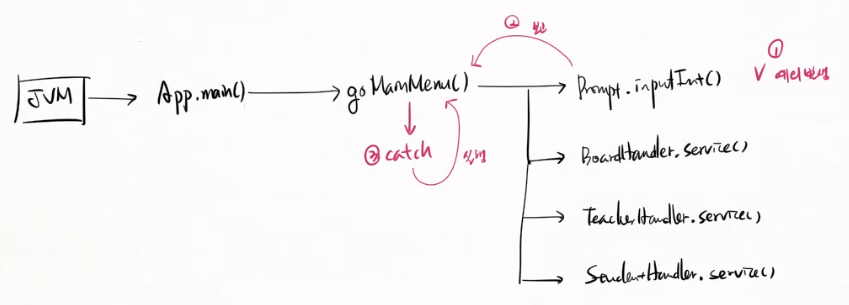 ② 보고
①
JVM
App.main()
goMainMenu()
Prompt.inputInt()
∨ 예외발생
③ catch
실행
BoardHandler.service()
TeacherHandler.service()
StudentHandler.service()